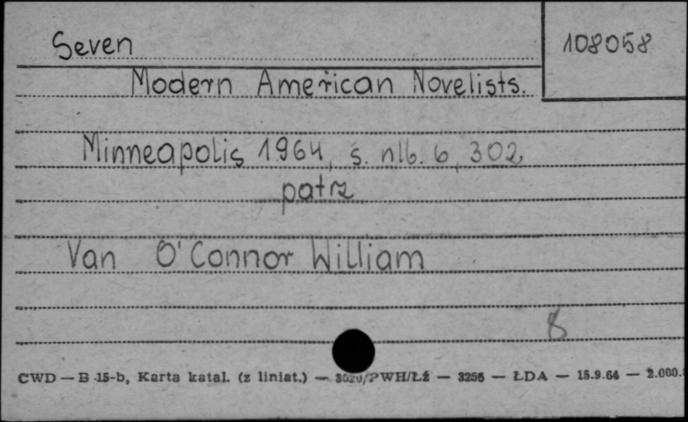 Seven
108058
Modern American Novelists.
Minneapolis 1964, s. nlb. 6, 302
patrz
Van O'Connor William
8
CWD — B 15-b, Karta katal. (z liniat.) — /PWH/Łź — 3256 — ŁDA — 15.9.64 — 2.000.